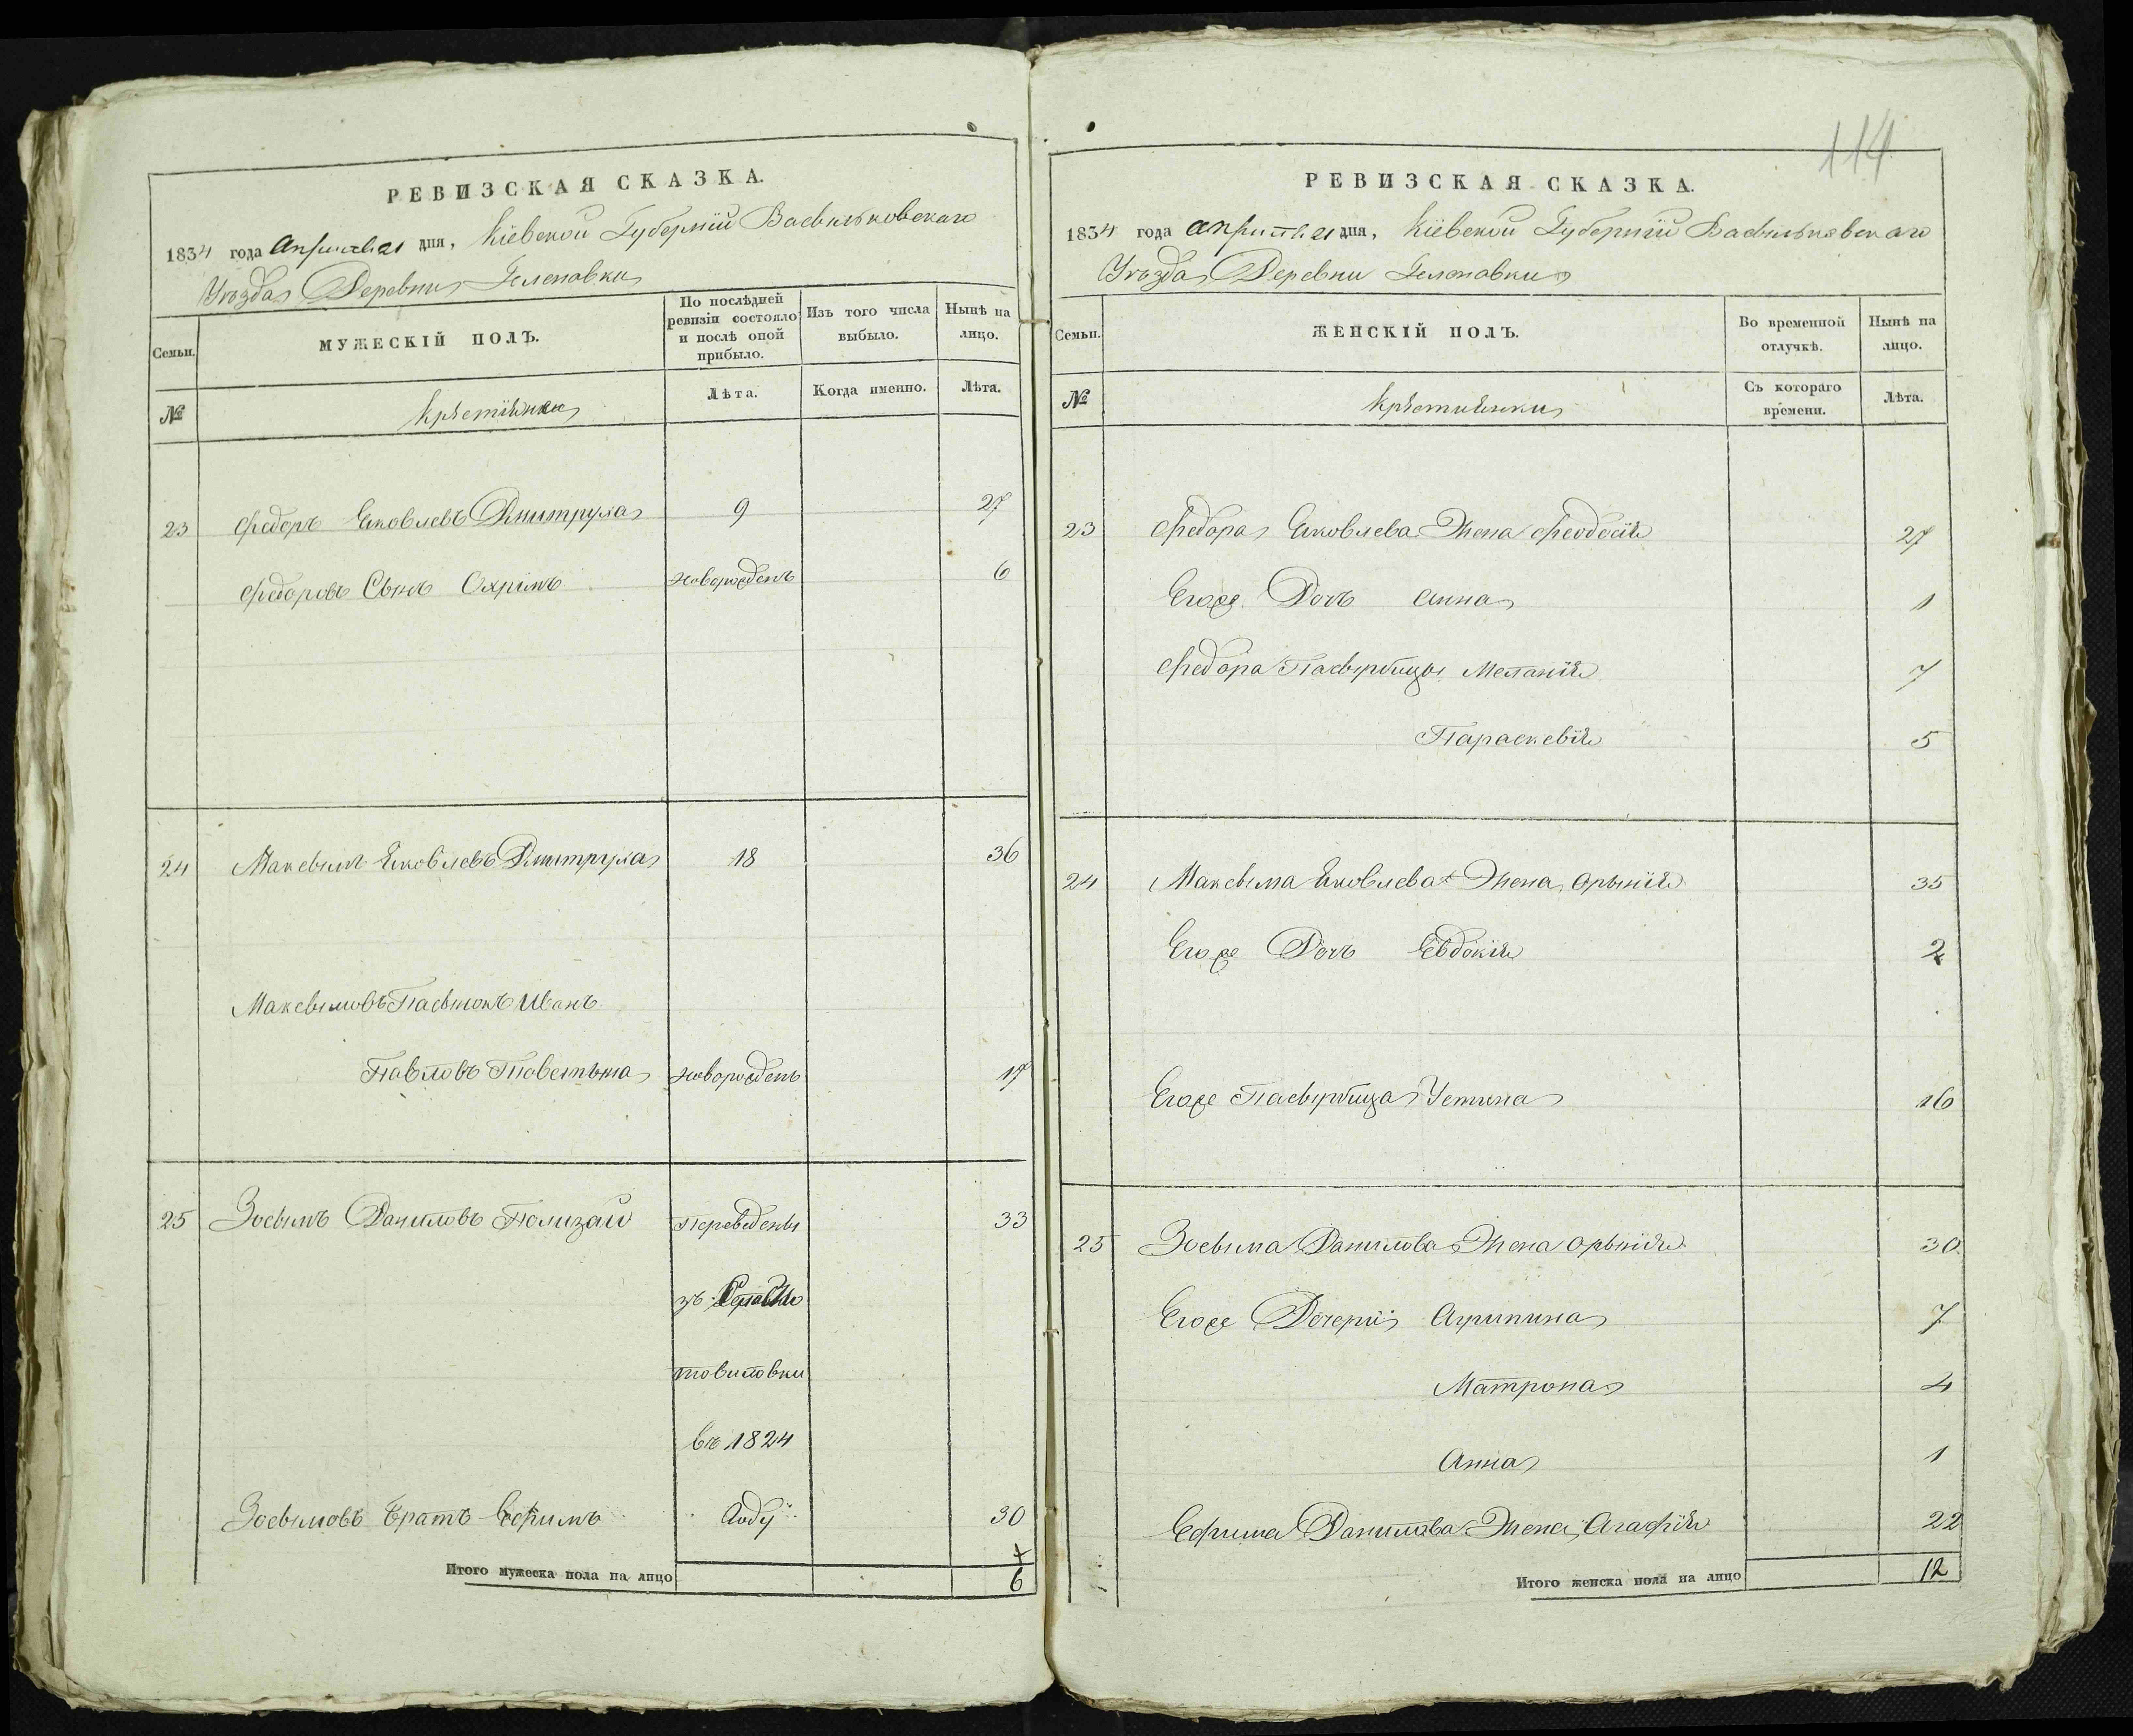 РЕВИЗСКАЯ СКАЗКА.
1834 года Апреля 21 дня, Кіевской Губерніи Васильковскаго
Уѣзда Деревни Геленовки
Семьи.
МУЖЕСКІЙ ПОЛЪ.
По послѣдней ревизіи состояло и послѣ оной прибыло.
Изъ того числа выбыло.
Нынѣ на лицо.
№
Крѣстіянки
Лѣта.
Когда именно.
Лѣта.
23 Федоръ Яковлевъ Дмитруха 9 27
Федоровъ Сынъ Охримъ новорожденъ 6
24 Максымъ Яковлевъ Дмитруха 18 36
Максымовъ Пасынокъ Иванъ
Павловъ новорожденъ 17
25 Зосымъ Даниловъ Полизай Переведены 33
зъ
товиловки
въ 1824
Зосымовъ Братъ Ефимъ Году 30
Итого мужеска пола на лицо 6
114
РЕВИЗСКАЯ СКАЗКА.
1834 года Апреля 21 дня, Кіевской Губерніи Васильковскаго
Уѣзда Деревни Геленовки
Семьи.
ЖЕНСКІЙ ПОЛЪ.
Во временной отлучкѣ.
Нынѣ на лицо.
№
Крѣстиянки
Съ котораго времени.
Лѣта.
23 Федора Яковлева Жена Феодосія 27
Егоже Дочъ Анна 1
Федора Пасербицы Меланія 7
Параскевія 5
24 Максыма Яковлева Жена Орынія 35
Егоже Дочъ Евдокія 2
Егоже Пасербица Устина 16
25 Зосыма Данилова Жена Орынія 30
Егоже Дочери Агрипина 7
Матрона 4
Анна 1
Ефима Данилова Жена Агафія 22
Итого женска пола на лицо 12